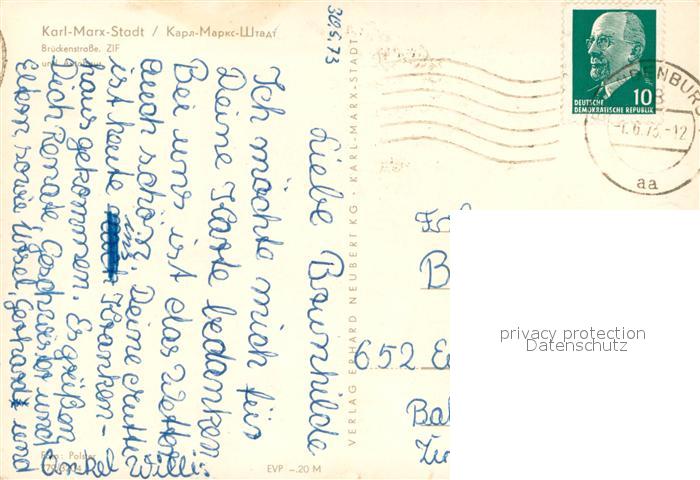 Karl-Marx-Stadt / Карл-Маркс-Штадт
Brückenstraße, ZIF
und
30.5.73
Liebe Brunhilde
Ich möchte mich für
Deine Karte bedanken
Bei uns ist das Wetter
auch schön. Deine Mutti
ist heute ins Kranken-
haus gekommen. Es grüßen
Dich Renate, Geschwister und
Eltern, sowie Ursel, Gerhard und
Onkel Willi
Foto: Polster
EVP –.20 M
VERLAG ERHARD NEUBERT KG · KARL-MARX-STADT
10
DEUTSCHE
DEMOKRATISCHE REPUBLIK
-1.6.73.-12
aa
B
652 E
Ba
privacy protection
Datenschutz